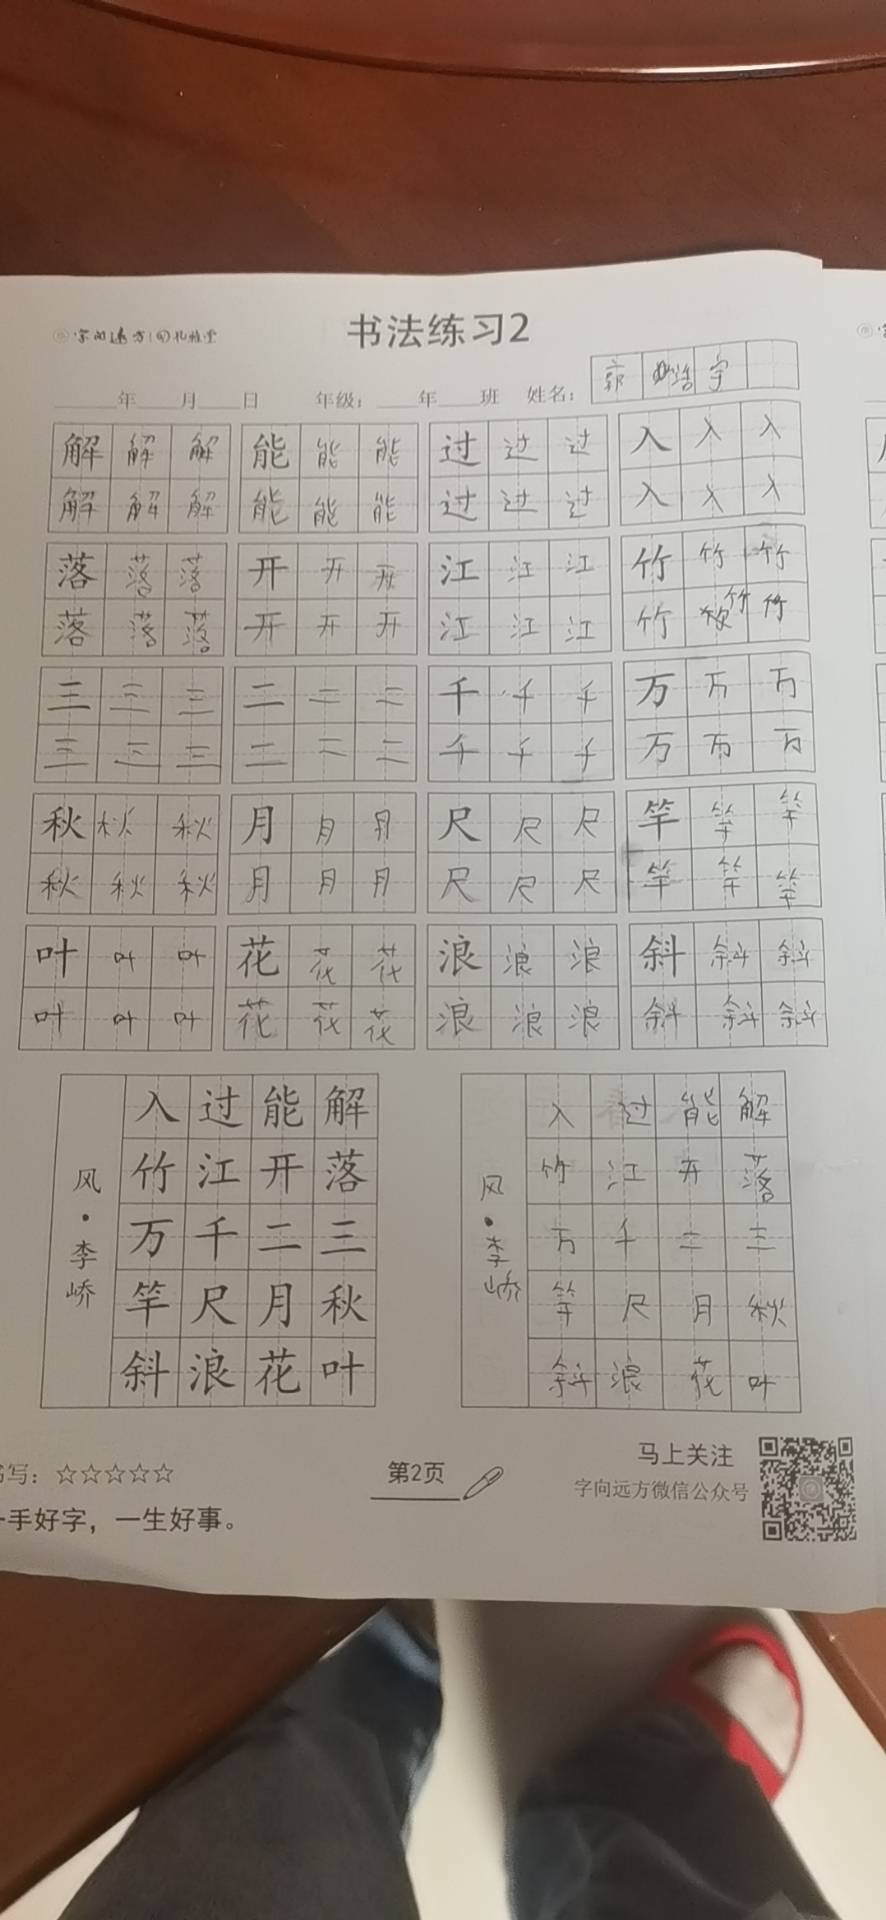 字向远方 孔雅堂
书法练习2
____年____月____日 年级:____年____班 姓名: 郭 浩 宇
解 解 解 能 能 能 过 过 过 入 入 入
解 解 解 能 能 能 过 过 过 入 入 入
落 落 落 开 开 开 江 江 江 竹 竹 竹
落 落 落 开 开 开 江 江 江 竹 竹 竹
三 三 三 二 二 二 千 千 千 万 万 万
三 三 三 二 二 二 千 千 千 万 万 万
秋 秋 秋 月 月 月 尺 尺 尺 竿 竿 竿
秋 秋 秋 月 月 月 尺 尺 尺 竿 竿 竿
叶 叶 叶 花 花 花 浪 浪 浪 斜 斜 斜
叶 叶 叶 花 花 花 浪 浪 浪 斜 斜 斜
风·李峤
入 过 能 解
竹 江 开 落
万 千 二 三
竿 尺 月 秋
斜 浪 花 叶
风·李峤
入 过 能 解
竹 江 开 落
万 千 二 三
竿 尺 月 秋
斜 浪 花 叶
书写:☆☆☆☆☆
第2页
马上关注
字向远方微信公众号
一手好字,一生好事。